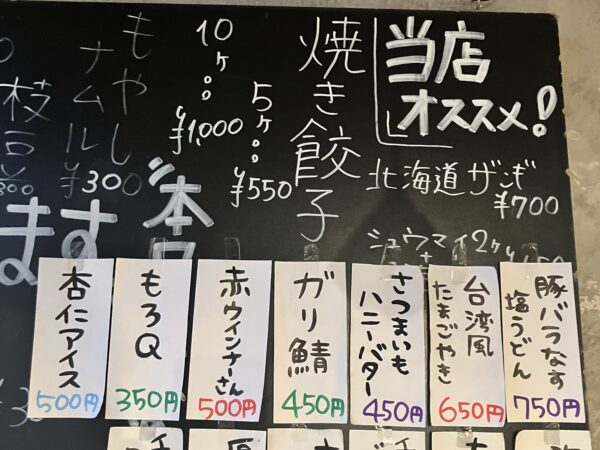 当店
オススメ!
北海道ザンギ
¥700
シュウマイ2ヶ
焼き餃子
5ヶ
¥550
10ヶ
¥1,000
もやし
ナムル
¥300
枝豆
ます
本
豚バラなす
塩うどん
750円
台湾風
たまごやき
650円
さつまいも
ハニーバター
450円
ガリ鯖
450円
赤ウインナーさん
500円
もろQ
350円
杏仁アイス
500円